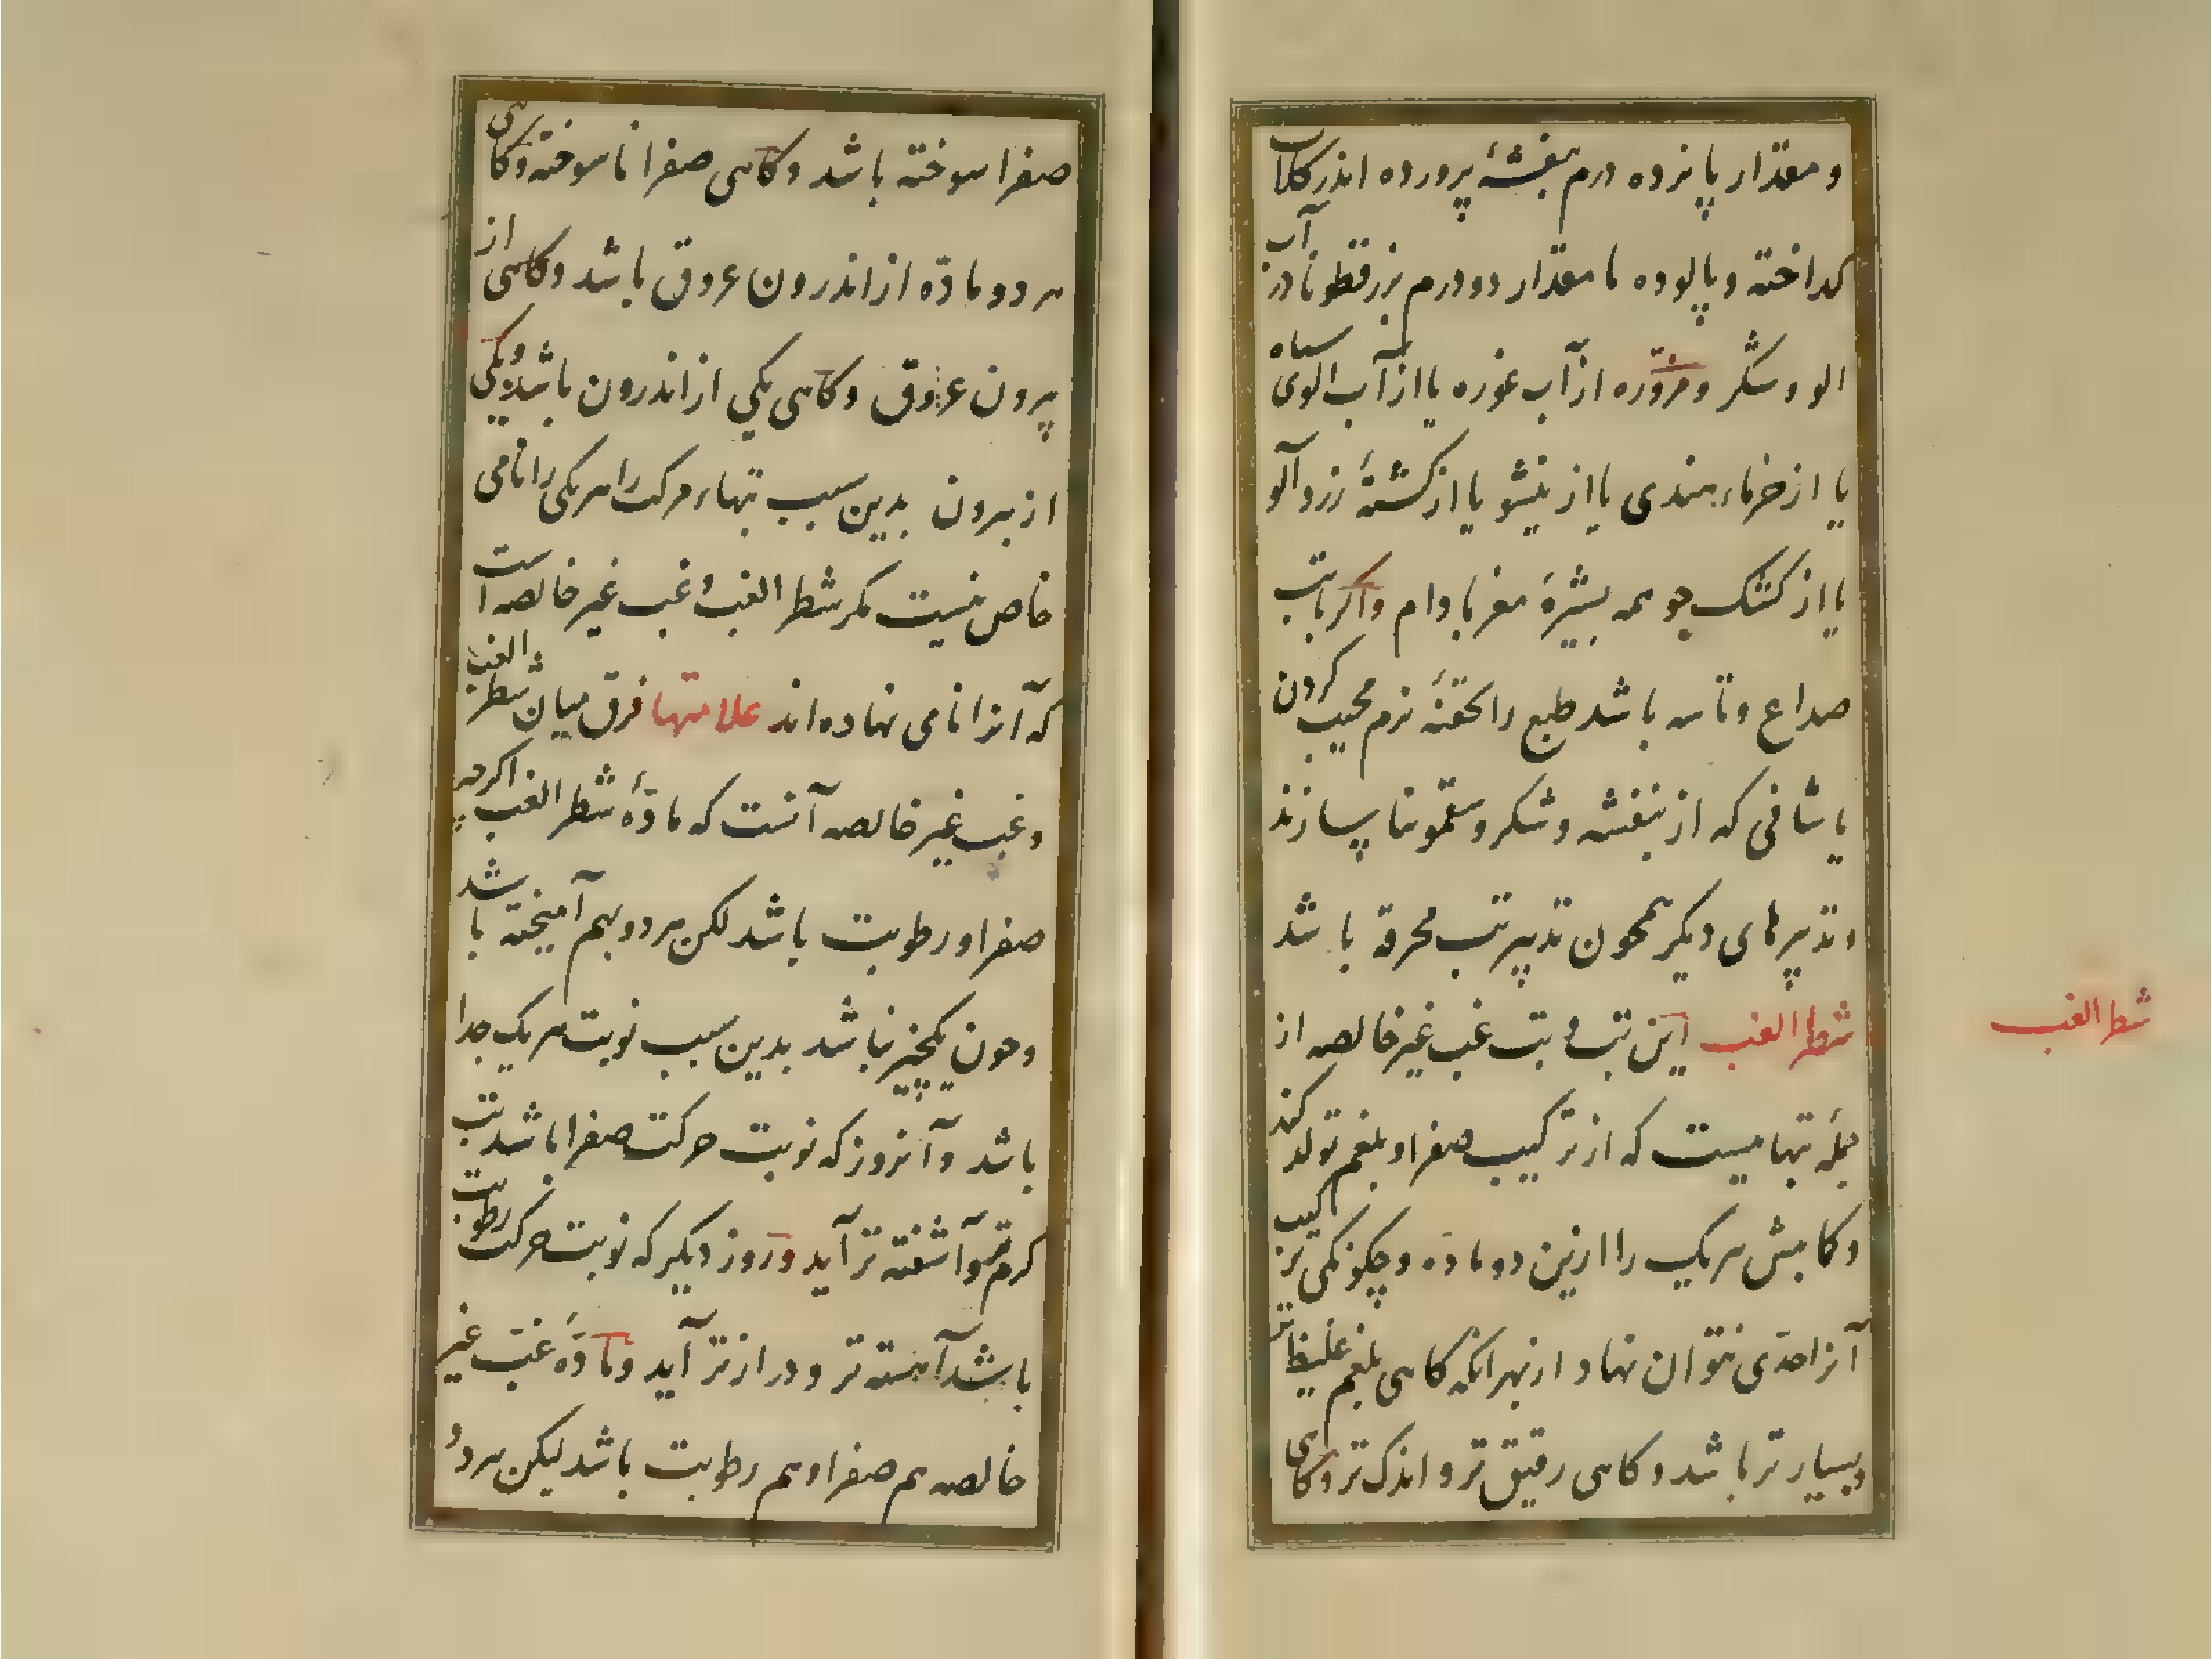 و مقدار پانزده درم بنفشهٔ پرورده اندر کلاب
کداخته و پالوده با مقدار دو درم بزرقطونا در آب
الو و شکر و مزوره از آب غوره یا از آب الوی سیاه
یا از خرماء هندی یا از نیشو یا از کشتهٔ زردآلو
یا از کشک جو همه بشیرهٔ مغز بادام و اکر با تب
صداع و تاسه باشد طبع را بحقنهٔ نرم مجیب کردن
یا شافی که از بنفشه و شکر و سقمونیا بسازند
و تدبیرهای دیکر همچون تدبیر تب محرقه باشد
شطر الغب این تب و تب غب غیر خالصه از
شطر الغب
جملهٔ تبهاییست که از ترکیب صفرا و بلغم تولد کند
و کما بیش هر یک را ازین دو ماده و چکونکی ترکیب
آنرا حدی نتوان نهاد از بهر انکه کاهی بلغم غلیظ تر
و بسیار تر باشد و کاهی رقیق تر و اندک تر و کاهی
صفرا سوخته باشد و کاهی صفرا ناسوخته و کاهی
هر دو مادّه از اندرون عروق باشد و کاهی از
برون عروق و کاهی یکی از اندرون باشد و یکی
از برون بدین سبب تبهاء مرکب را هر یکی را نامی
خاص نیست مکر شطر الغب و غب غیر خالصه است
که آنرا نامی نهاده‌اند علامتها فرق میان شطر الغب
و غب غیر خالصه آنست که مادّهٔ شطر الغب اکرچه
صفرا و رطوبت باشد لکن هر دو بهم آمیخته باشد
و چون یکچیز نباشد بدین سبب نوبت هر یک جدا
باشد و آنروز که نوبت حرکت صفرا باشد تب
کرمتر و آشفته تر آید و روز دیکر که نوبت حرکت رطوبت
باشد آهسته تر و دراز تر آید و مادّهٔ غب غیر
خالصه هم صفرا و هم رطوبت باشد لیکن هر دو